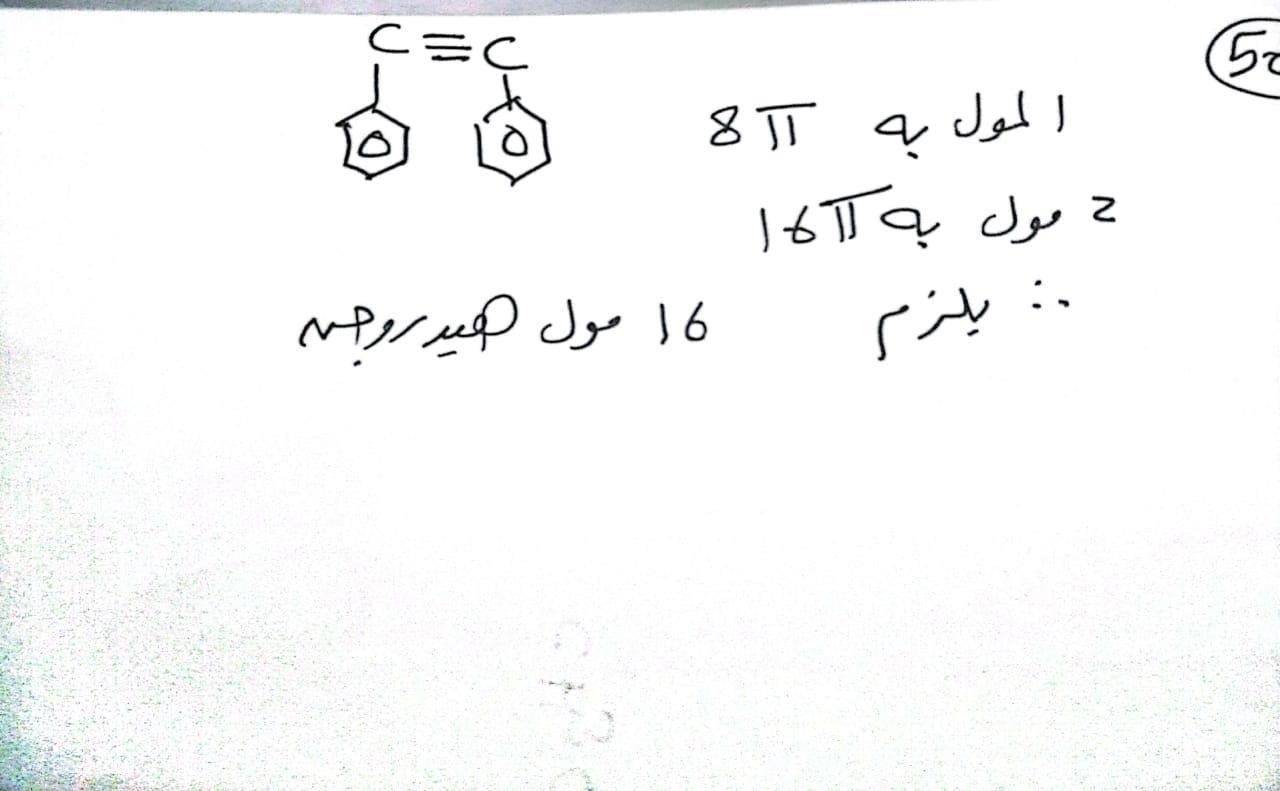 C ≡ C
المول به 8 π
2 مول به 16 π
∴ يلزم 16 مول هيدروجين